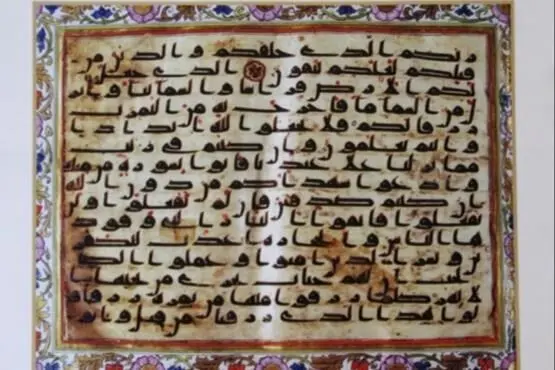 ربكم الذي خلقكم والذين من
قبلكم لعلكم تتقون الذي جعل
لكم الارض فرشا والسما بنا وانز
ل من السما ما فاخرج به من الثمرت
رزقا لكم فلا تجعلوا لله اندادا
وانتم تعلمون وان كنتم في ريب
مما نزلنا على عبدنا فاتوا بسورة من مثله
وادعوا شهداكم من دون الله ا
ن كنتم صدقين فان لم تفعلوا ولن
تفعلوا فاتقوا النار التي وقود
ها الناس والحجارة اعدت للكفر
ين وبشر الذين امنوا وعملوا الصا
لحت ان لهم جنت تجري من تحتها ا
لانهر كلما رزقوا منها من ثمرة رزقا قا
لوا هذا الذي رزقنا من قبل واتوا